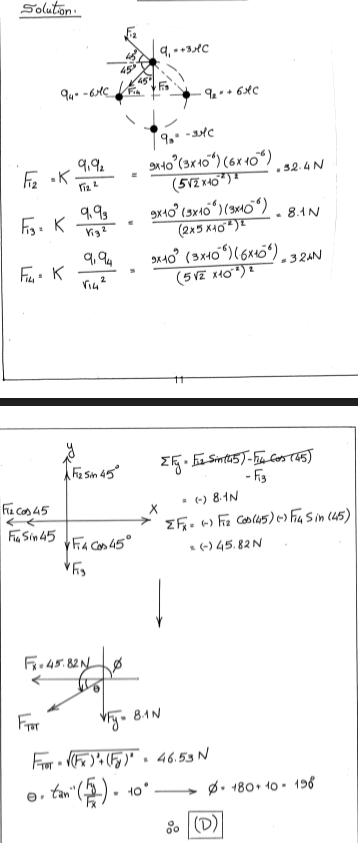 Solution.
F12
q1 = +3μC
45°
45°
45°
q4 = -6μC
F14
F13
q2 = +6μC
q3 = -3μC
F12 = K q1q2 / r12² = 9×10⁹ (3×10⁻⁶)(6×10⁻⁶) / (5√2 ×10⁻²)² = 32.4 N
F13 = K q1q3 / r13² = 9×10⁹ (3×10⁻⁶)(3×10⁻⁶) / (2×5×10⁻²)² = 8.1 N
F14 = K q1q4 / r14² = 9×10⁹ (3×10⁻⁶)(6×10⁻⁶) / (5√2 ×10⁻²)² = 32.4 N
11
y
F12 Sin 45°
ΣFy = F12 Sin(45) - F14 Cos(45)
- F13
F12 Cos 45
= (-) 8.1 N
X
ΣFx = (-) F12 Cos(45) (-) F14 Sin (45)
F14 Sin 45
F14 Cos 45°
= (-) 45.82 N
F13
Fx = 45.82 N
Ø
θ
FTOT
Fy = 8.1 N
FTOT = √(Fx)² + (Fy)² = 46.53 N
θ = tan⁻¹ (Fy/Fx) = 10° → Ø = 180 + 10 = 190
∴ (D)